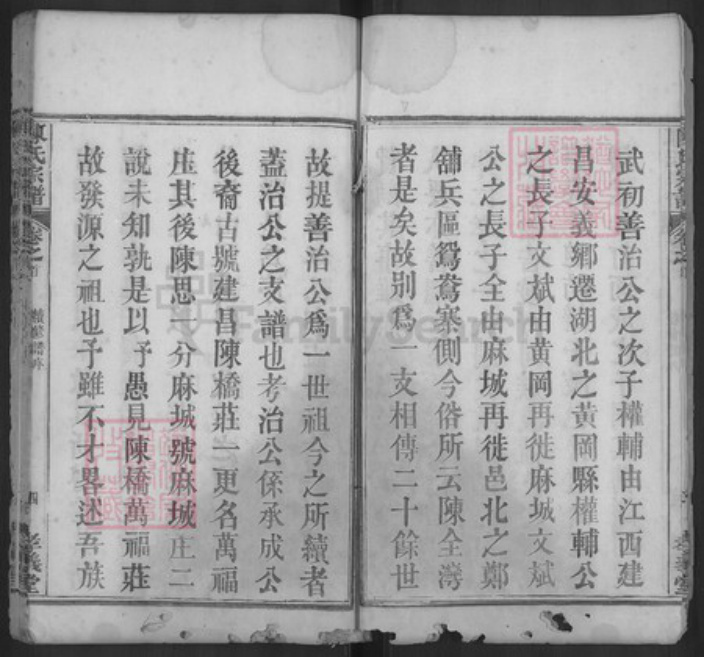 武初善治公之次子權輔由江西建
昌安義鄉遷湖北之黄岡縣權輔公
之長子文斌由黄岡再徙麻城文斌
公之長子全由麻城再徙邑北之鄭
舖兵區鴛鴦寨側今俗所云陳全灣
者是矣故别爲一支相傳二十餘世
故提善治公爲一世祖今之所續者
蓋治公之支譜也考治公係承成公
後裔古號建昌陳橋莊一更名萬福
庄其後陳思 分麻城號麻城庄二
說未知孰是以予愚見陳橋萬福莊
故發源之祖也予雖不才畧述吾族
氏宗譜
四
孝義堂
FamilySearch